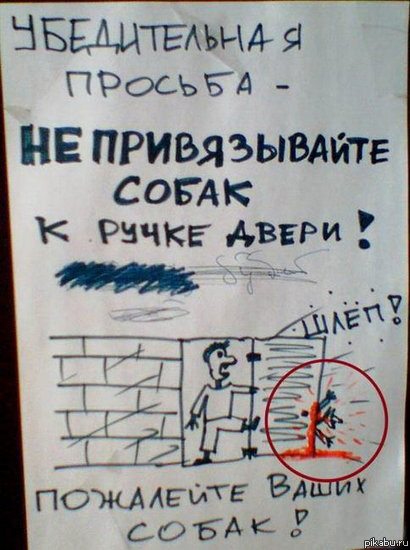 УБЕДИТЕЛЬНАЯ
ПРОСЬБА –
НЕ ПРИВЯЗЫВАЙТЕ
СОБАК
К РУЧКЕ ДВЕРИ!
ШЛЁП!
ПОЖАЛЕЙТЕ ВАШИХ
СОБАК!
pikabu.ru